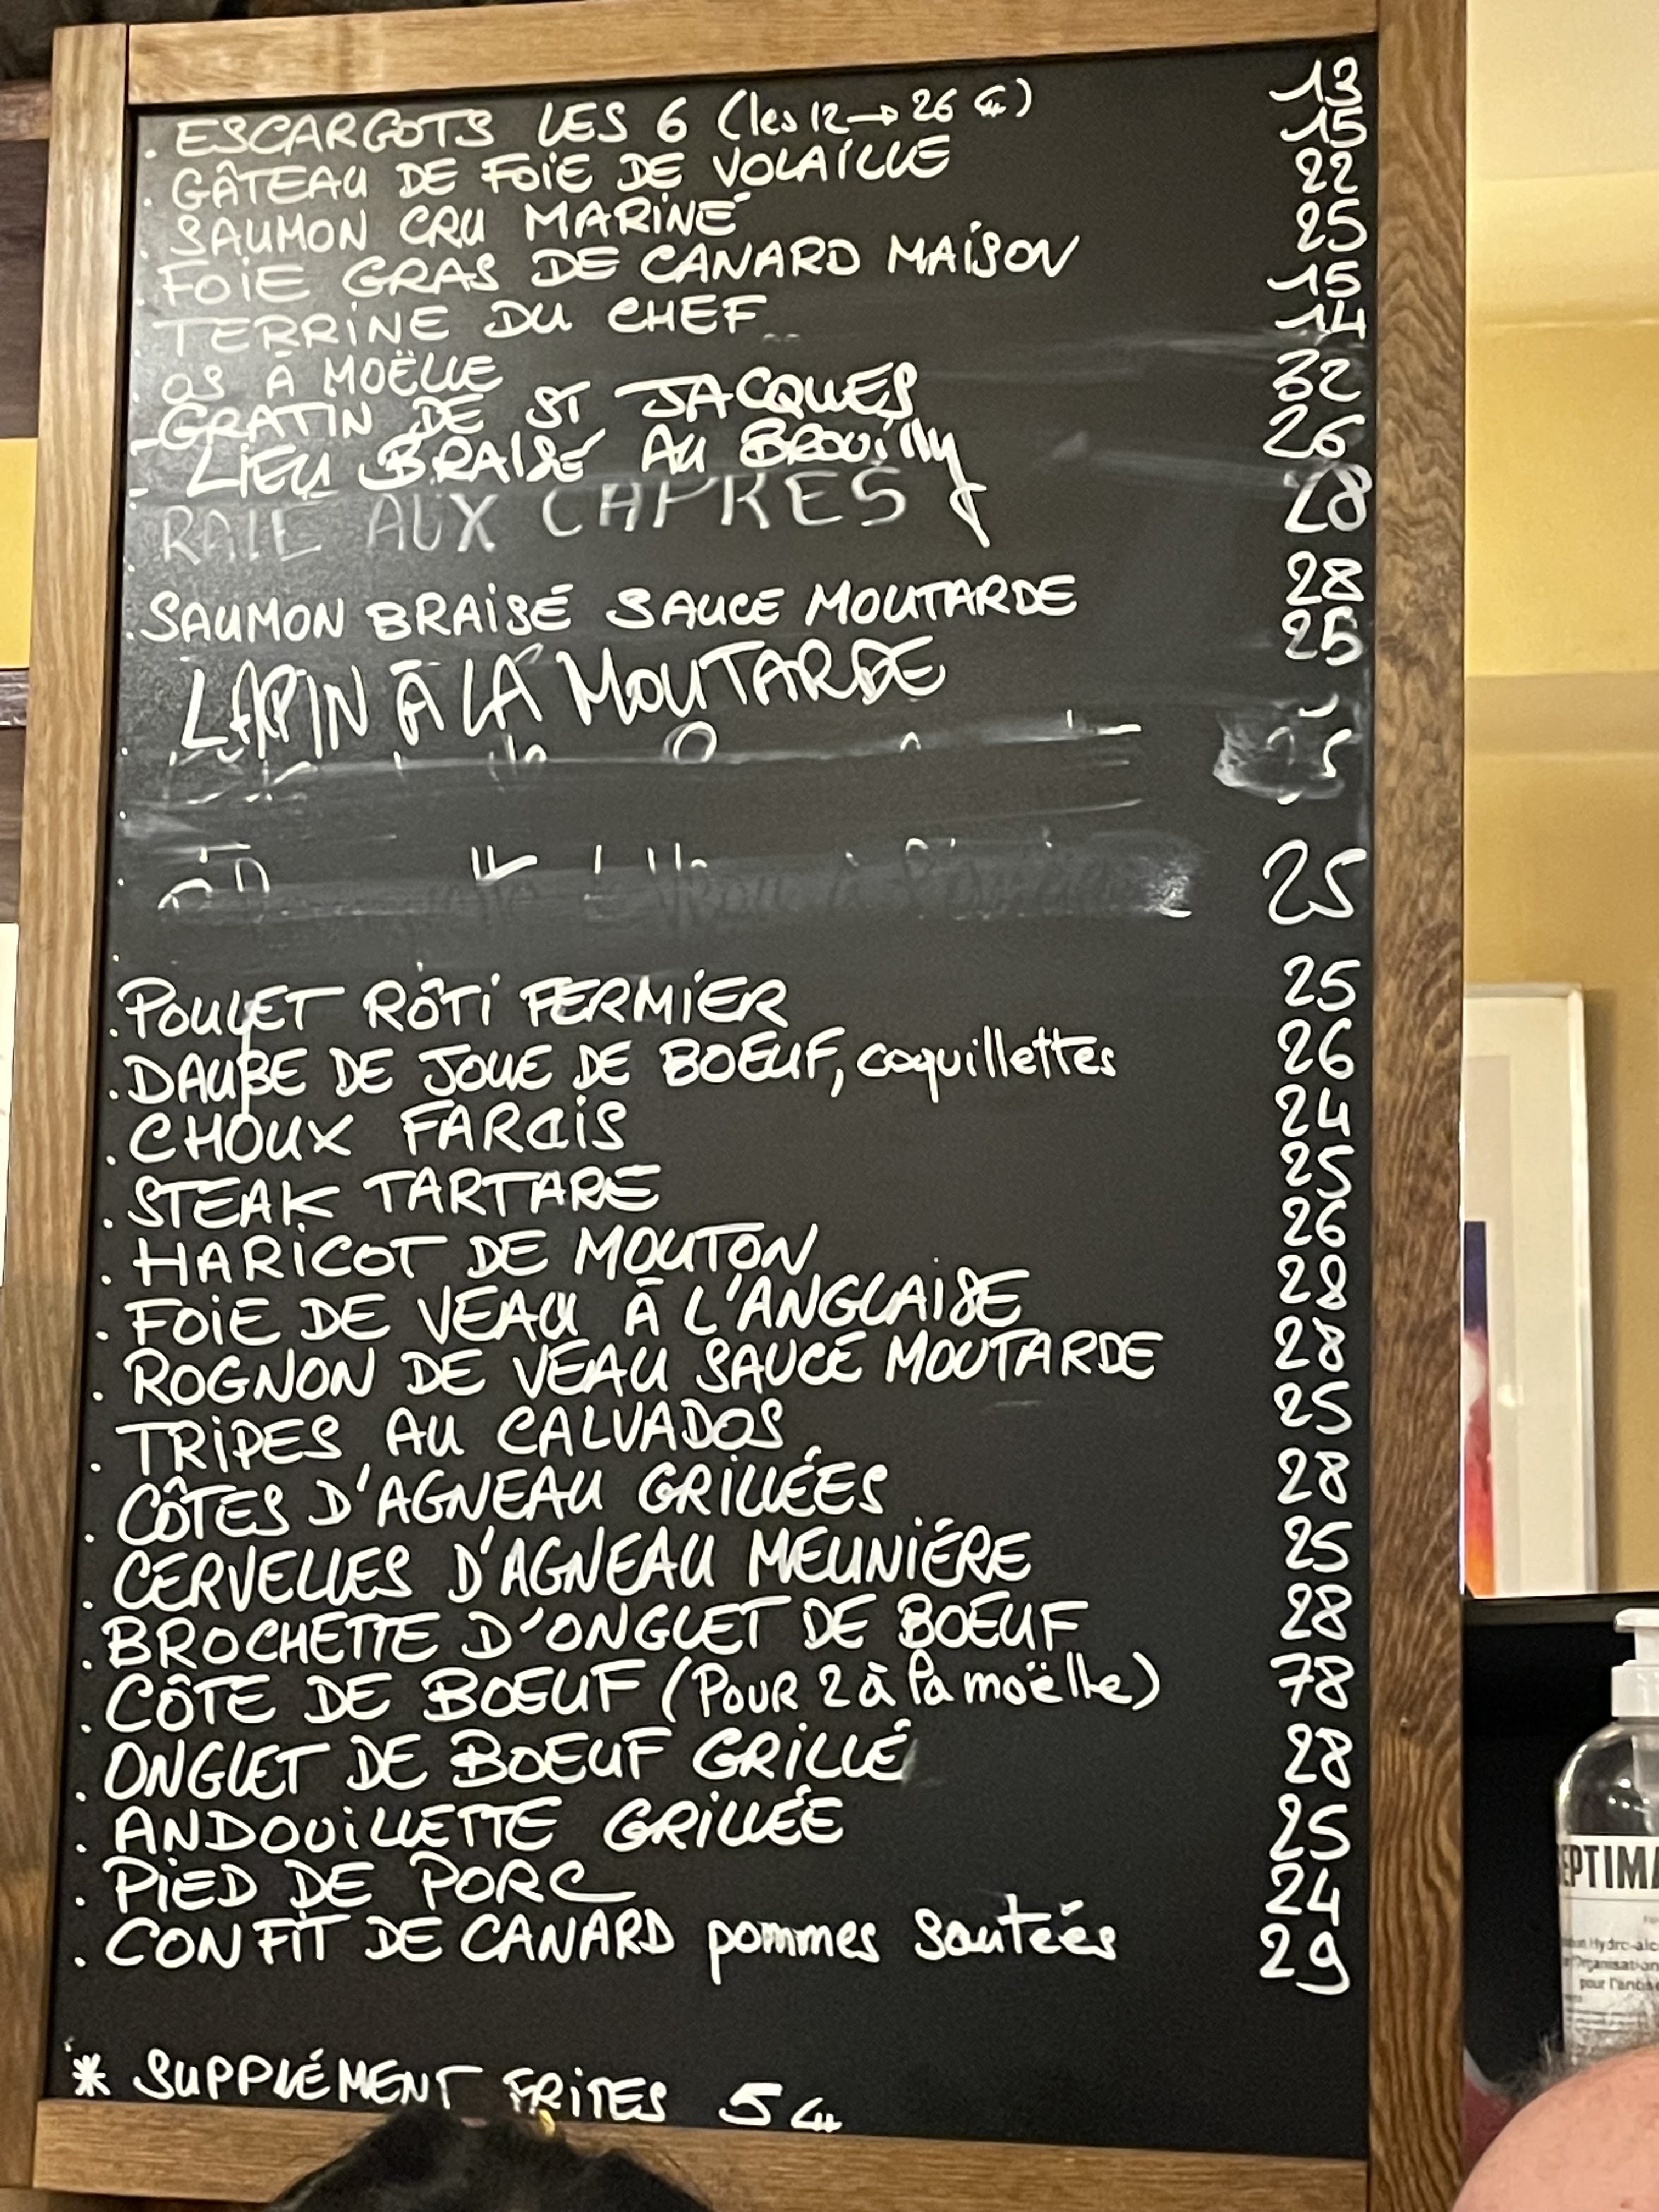 . ESCARGOTS LES 6 (les 12→26 €) 13
. GÂTEAU DE FOIE DE VOLAILLE 15
. SAUMON CRU MARINÉ 22
. FOIE GRAS DE CANARD MAISON 25
. TERRINE DU CHEF 15
. OS À MOËLLE 14
- GRATIN DE ST JACQUES 32
- LIEU BRAISÉ AU BROUILLY 26
. RAIE AUX CAPRES 28
. SAUMON BRAISÉ SAUCE MOUTARDE 28
. LAPIN À LA MOUTARDE 25
25
. POULET RÔTI FERMIER 25
. DAUBE DE JOUE DE BOEUF, coquillettes 26
. CHOUX FARCIS 24
. STEAK TARTARE 25
. HARICOT DE MOUTON 26
. FOIE DE VEAU À L'ANGLAISE 28
. ROGNON DE VEAU SAUCE MOUTARDE 28
. TRIPES AU CALVADOS 25
. CÔTES D'AGNEAU GRILLÉES 28
. CERVELLES D'AGNEAU MEUNIÈRE 25
. BROCHETTE D'ONGLET DE BOEUF 28
. CÔTE DE BOEUF (POUR 2 à la moëlle) 78
. ONGLET DE BOEUF GRILLÉ 28
. ANDOUILLETTE GRILLÉE 25
. PIED DE PORC 24
. CONFIT DE CANARD pommes sautées 29
* SUPPLÉMENT FRITES 5 €
EPTIMA
pour l'antis